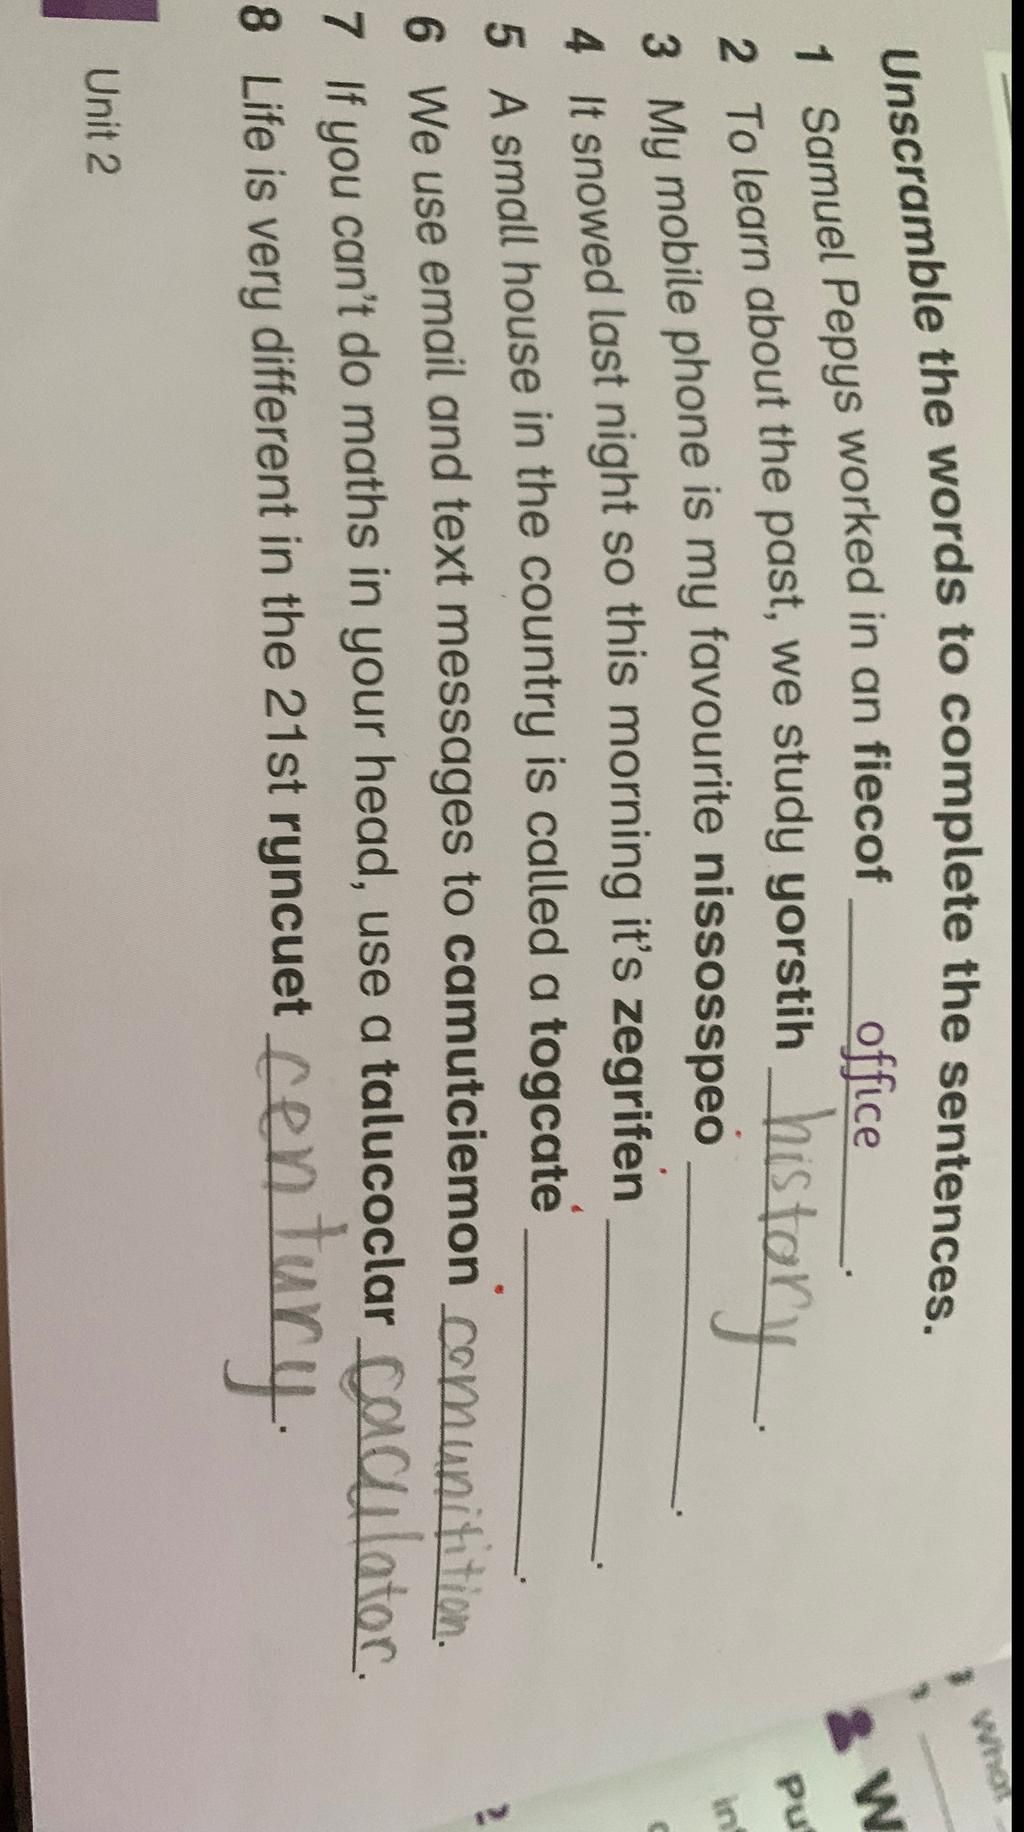 Unscramble the words to complete the sentences.
1 Samuel Pepys worked in an fiecof office.
2 To learn about the past, we study yorstih history.
3 My mobile phone is my favourite nissosspeo
4 It snowed last night so this morning it's zegrifen
5 A small house in the country is called a togcate
6 We use email and text messages to camutciemon comunitition.
7 If you can't do maths in your head, use a talucoclar caculator.
8 Life is very different in the 21st ryncuet century.
Unit 2
What
2 W
Pu
in
2